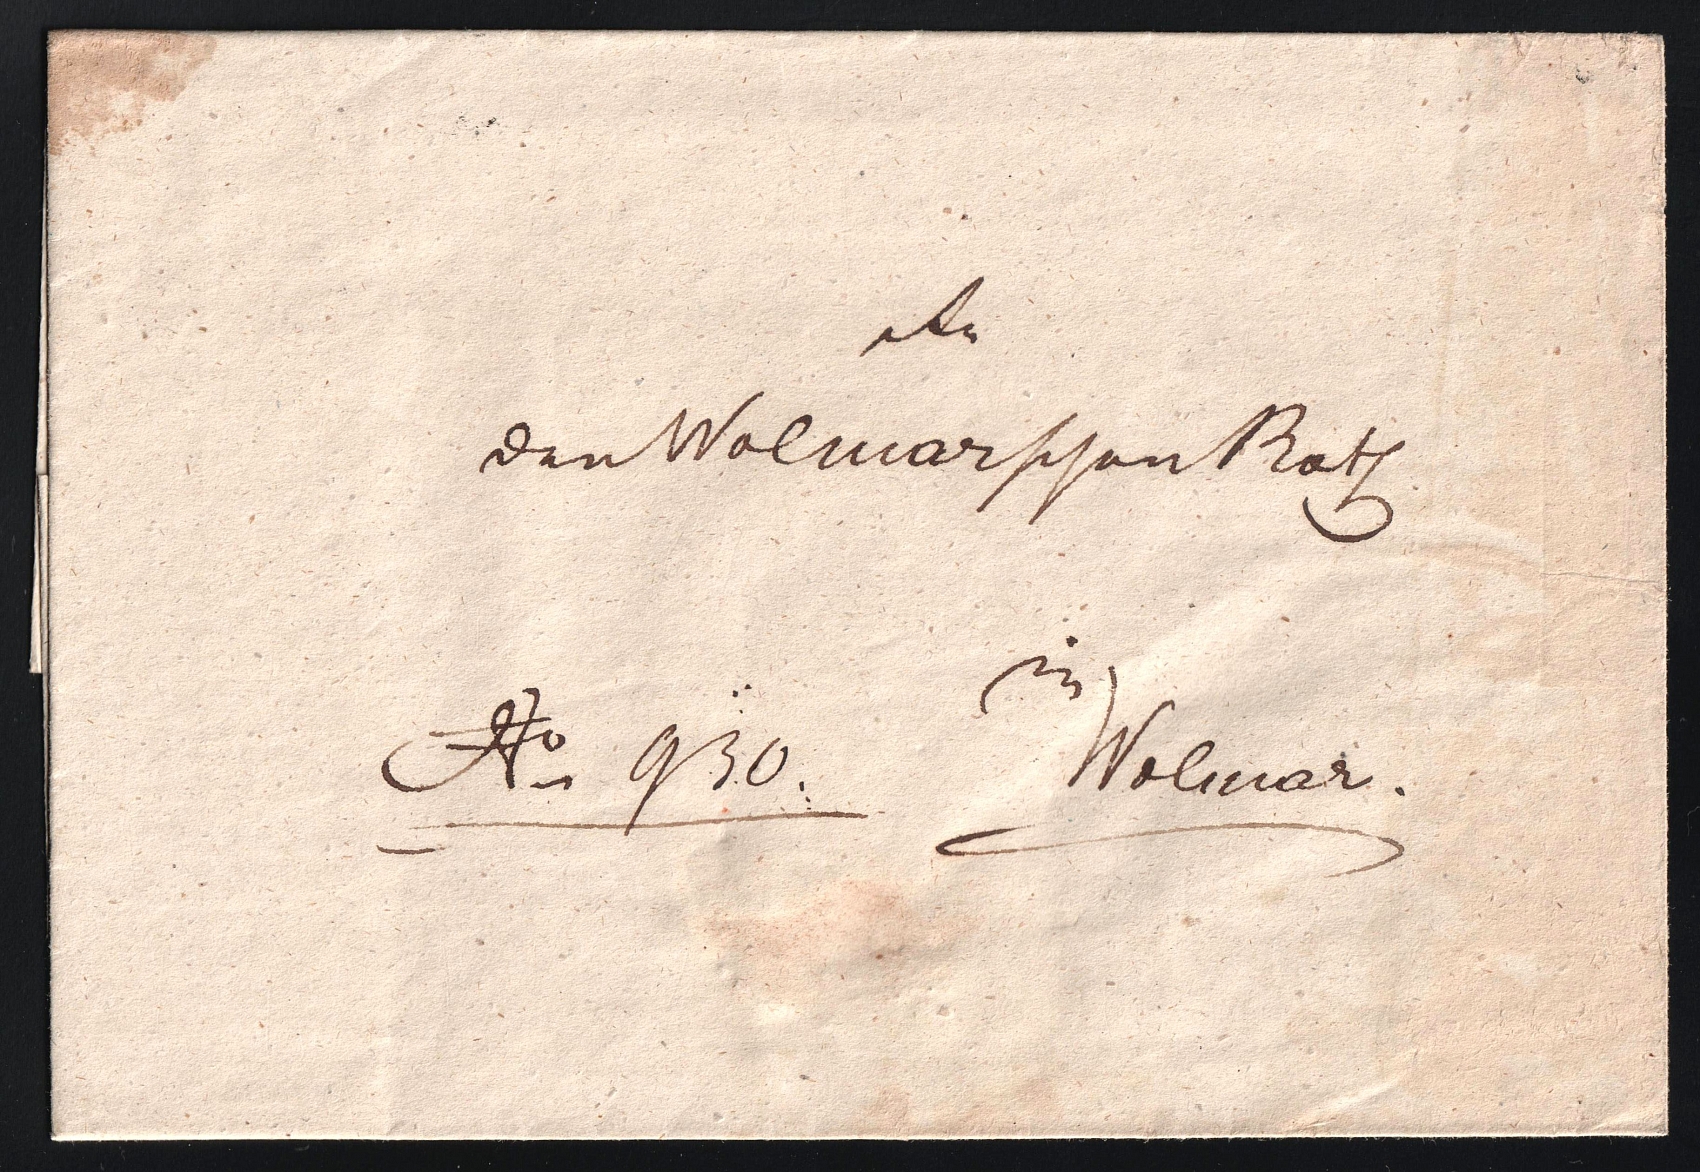 An
den Wolmarschen Rath
in
No 930.
Wolmar.